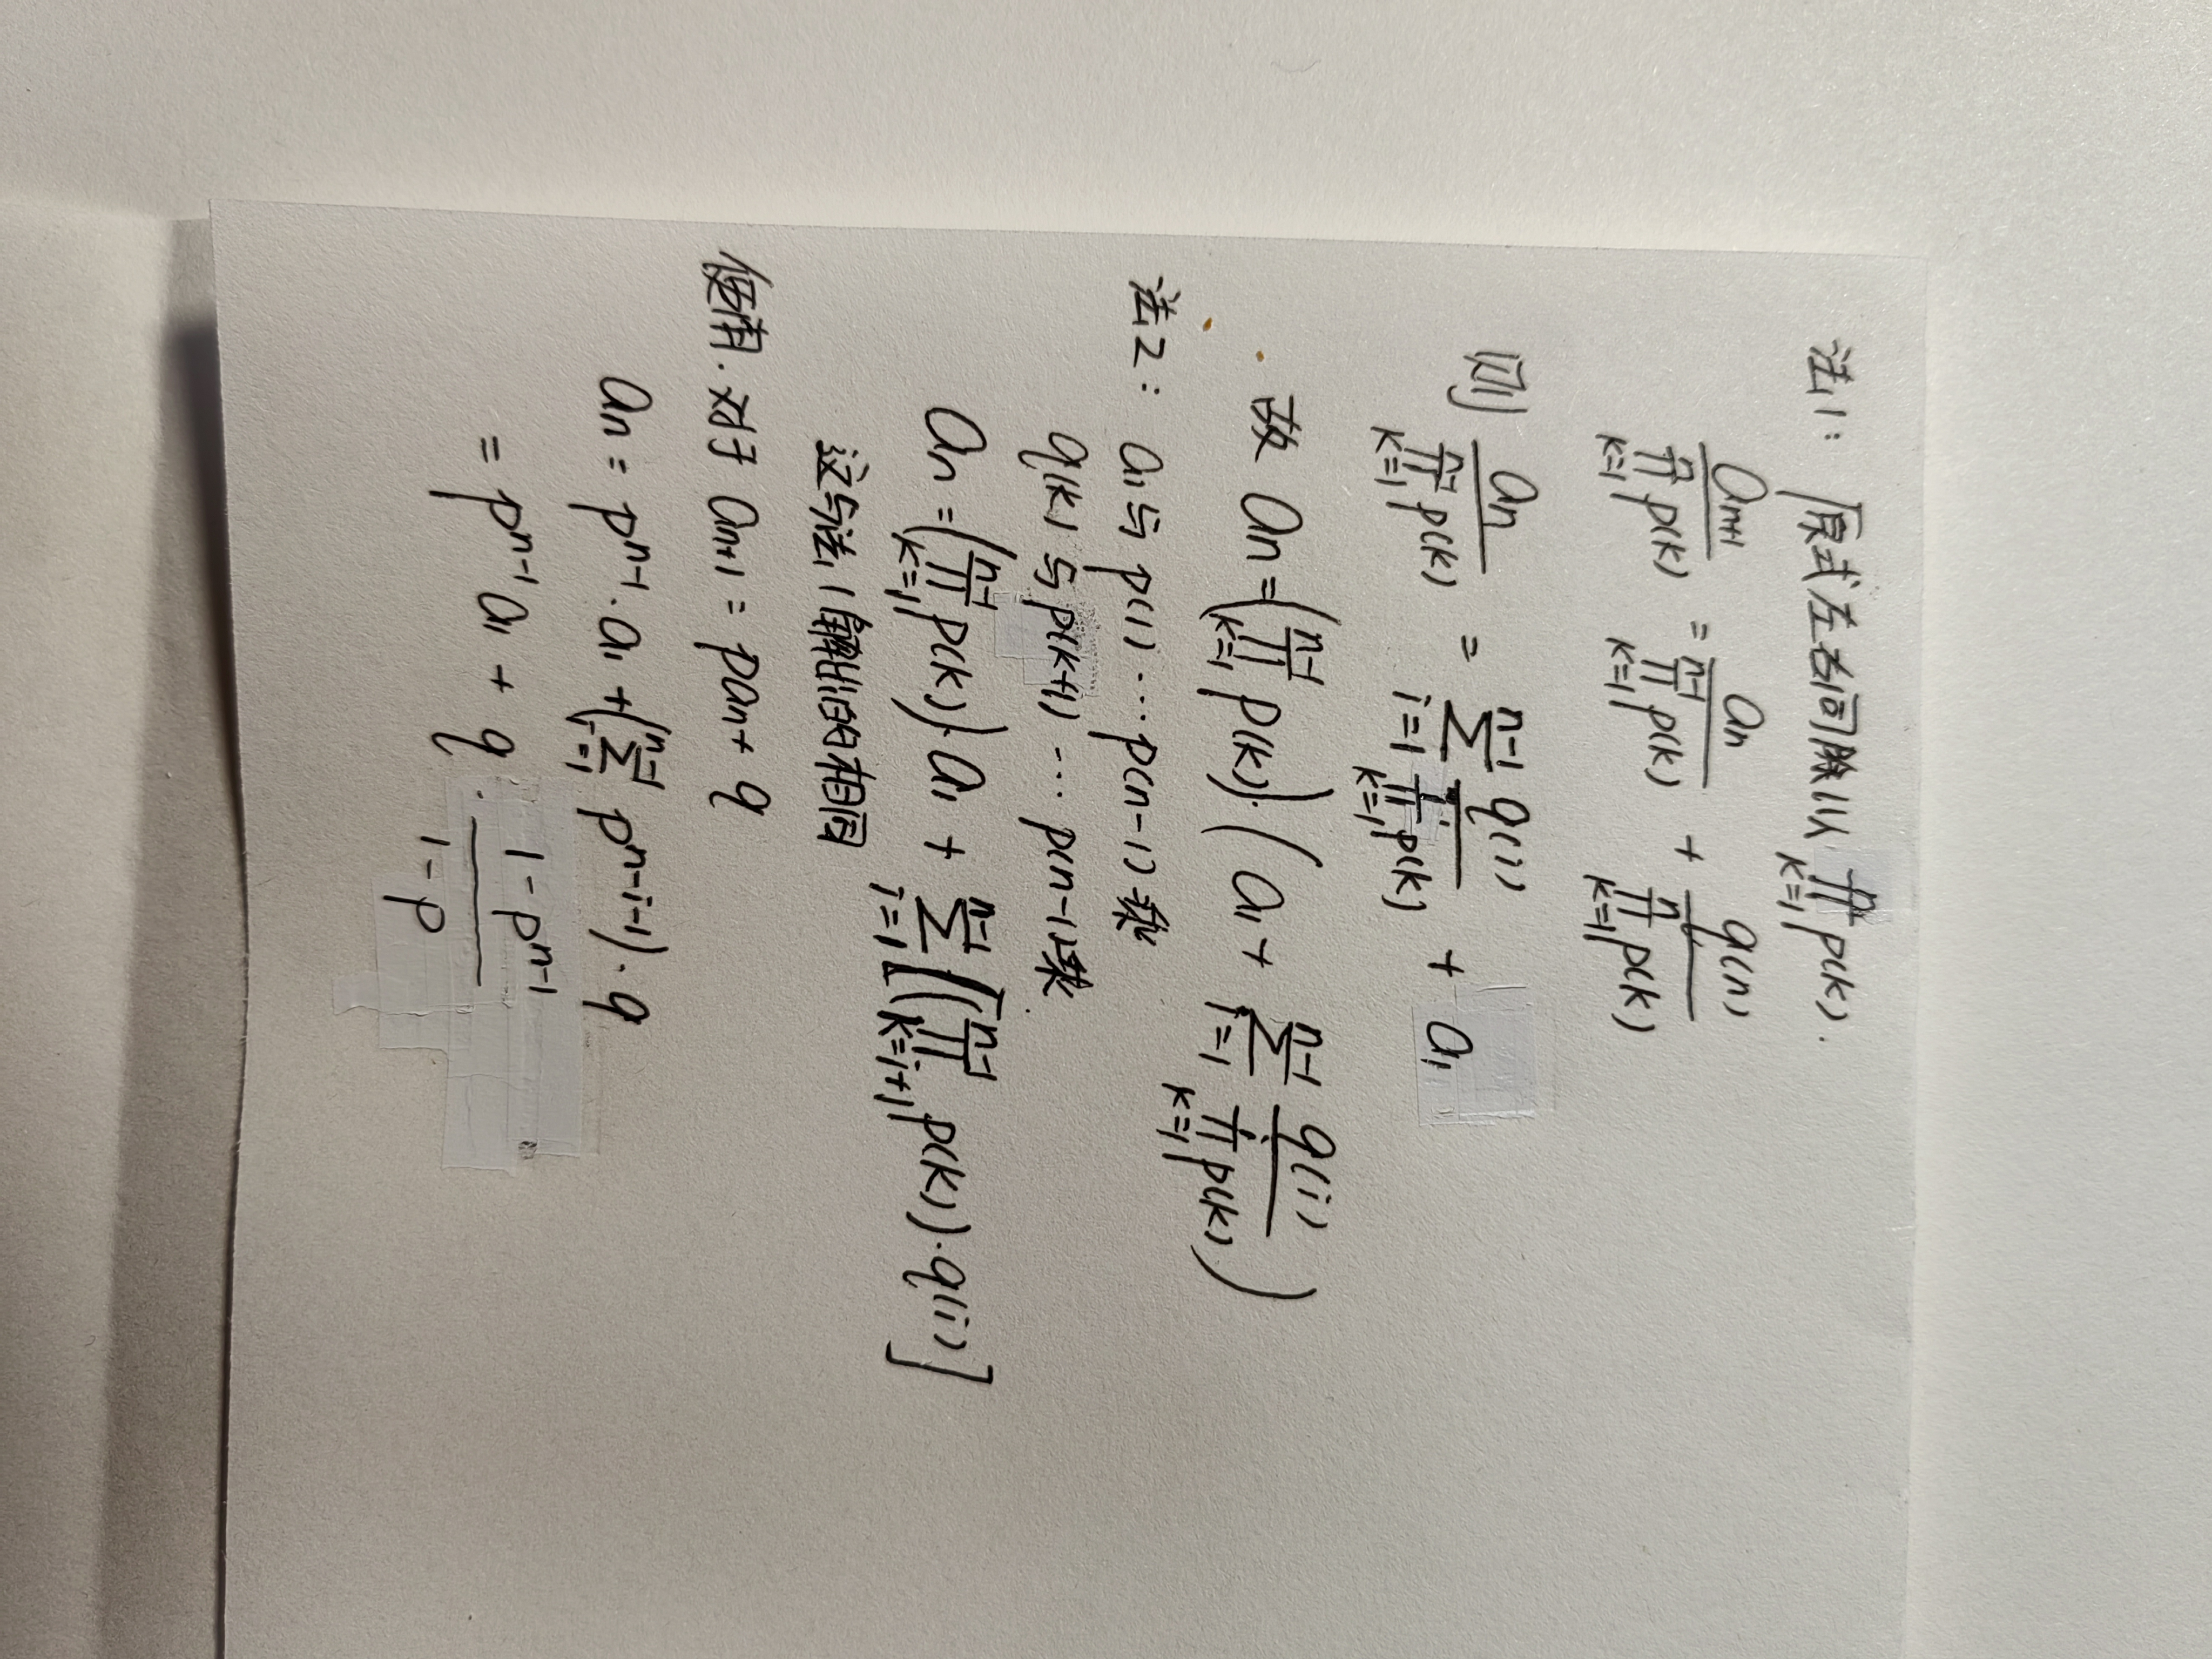 法1：原式左右同除以 \prod_{k=1}^{n} p(k).
\frac{a_{n+1}}{\prod_{k=1}^{n} p(k)} = \frac{a_n}{\prod_{k=1}^{n-1} p(k)} + \frac{q(n)}{\prod_{k=1}^{n} p(k)}
则 \frac{a_n}{\prod_{k=1}^{n-1} p(k)} = \sum_{i=1}^{n-1} \frac{q(i)}{\prod_{k=1}^{i} p(k)} + a_1
故 a_n = (\prod_{k=1}^{n-1} p(k)) \cdot (a_1 + \sum_{i=1}^{n-1} \frac{q(i)}{\prod_{k=1}^{i} p(k)})
法2：a_1 与 p(1) … p(n-1) 乘
q(k) 与 p(k+1) … p(n-1) 乘.
a_n = (\prod_{k=1}^{n-1} p(k)) \cdot a_1 + \sum_{i=1}^{n-1} [(\prod_{k=i+1}^{n-1} p(k)) \cdot q(i)]
这与法1解出的相同
使用. 对于 a_{n+1} = pa_n + q
a_n = p^{n-1} \cdot a_1 + (\sum_{i=1}^{n-1} p^{n-i-1}) \cdot q
= p^{n-1} a_1 + q \cdot \frac{1-p^{n-1}}{1-p}